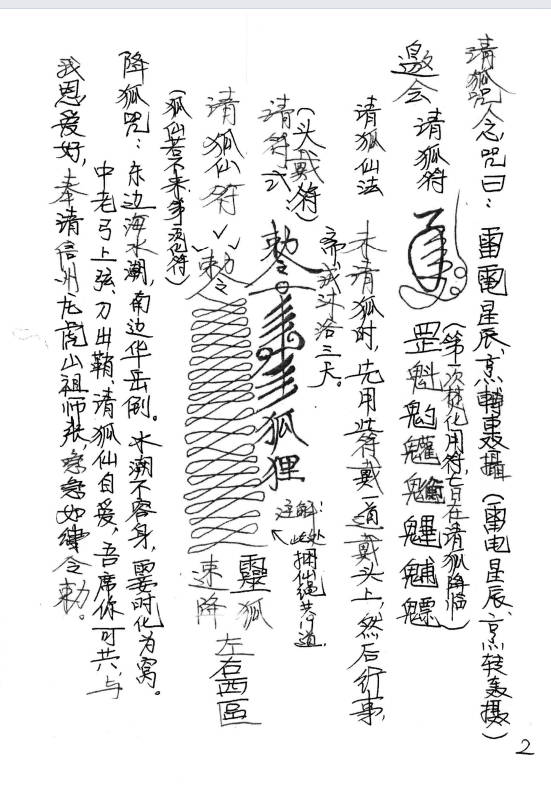 请狐咒念咒曰：雷電星辰、烹轉轟攝（雷电星辰、烹转轰摄）
邀会请狐符
罡魁魀魓魒
（第一次焚化用符，旨在请狐降临）
请狐仙法 未请狐时，先用此符戴一道戴头上，然后行事，
斋戒沐浴三天。
（头戴符）
请符式 勅令 狐狸
注解：此处捆仙绳共 道，
请狐仙符 勅令 靈狐速降 左右西區
（狐仙若不来多 化符）
降狐咒：东边海水潮，南边华岳倒。水潮不容身，霎时化为窝。
中老弓上弦、刀出鞘、请狐仙自爱，吾席你可共，与
我恩爱好，奉请信州龙虎山祖师张，急急如律令勅。
2